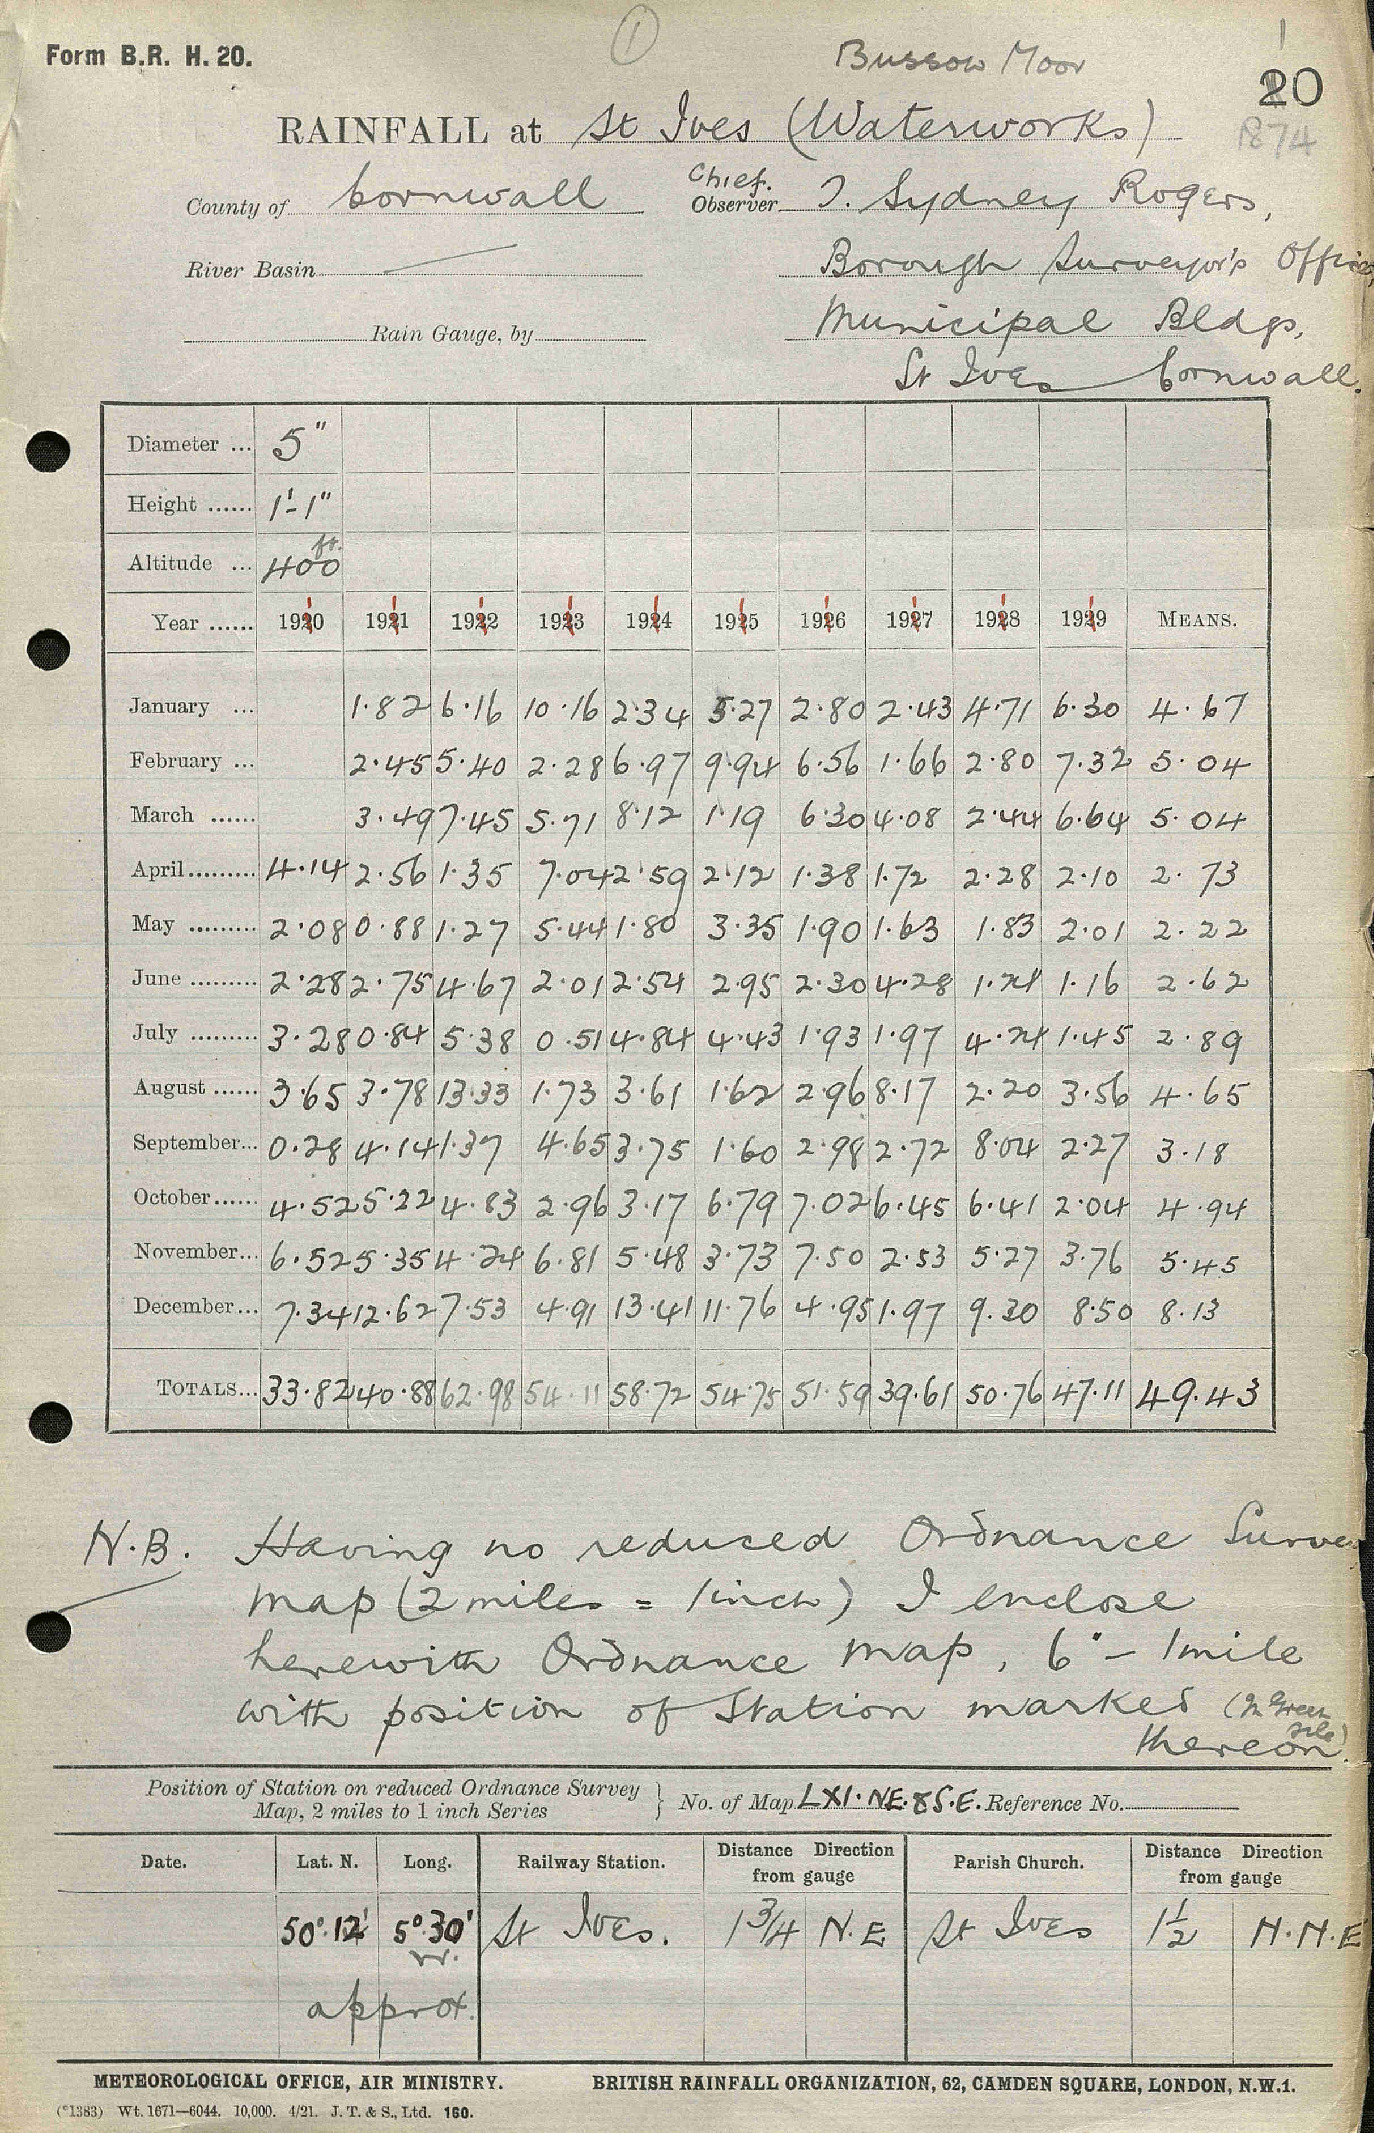 Form B.R. H. 20.
1
Bussow Moor
1
20
RAINFALL at St Ives (Waterworks)
874
County of Cornwall
Chief.
Observer J. Sydney Rogers,
River Basin
Borough Surveyor's Office,
Rain Gauge, by
Municipal Bldgs,
St Ives Cornwall.
Diameter ... 5"
Height ...... 1'-1"
Altitude ... 400 ft.
Year ...... 1910 1911 1912 1913 1914 1915 1916 1917 1918 1919 MEANS.
January ... 1.82 6.16 10.16 2.34 5.27 2.80 2.43 4.71 6.30 4.67
February ... 2.45 5.40 2.28 6.97 9.94 6.56 1.66 2.80 7.32 5.04
March ...... 3.49 7.45 5.71 8.12 1.19 6.30 4.08 2.44 6.64 5.04
April......... 4.14 2.56 1.35 7.04 2.59 2.12 1.38 1.72 2.28 2.10 2.73
May ......... 2.08 0.88 1.27 5.44 1.80 3.35 1.90 1.63 1.83 2.01 2.22
June ......... 2.28 2.75 4.67 2.01 2.54 2.95 2.30 4.28 1.24 1.16 2.62
July ......... 3.28 0.84 5.38 0.51 4.84 4.43 1.93 1.97 4.24 1.45 2.89
August ...... 3.65 3.78 13.33 1.73 3.61 1.62 2.96 8.17 2.20 3.56 4.65
September... 0.28 4.14 1.37 4.65 3.75 1.60 2.98 2.72 8.04 2.27 3.18
October...... 4.52 5.22 4.83 2.96 3.17 6.79 7.02 6.45 6.41 2.04 4.94
November... 6.52 5.35 4.24 6.81 5.48 3.73 7.50 2.53 5.27 3.76 5.45
December... 7.34 12.62 7.53 4.91 13.41 11.76 4.95 1.97 9.30 8.50 8.13
TOTALS... 33.82 40.88 62.98 54.11 58.72 54.75 51.59 39.61 50.76 47.11 49.43
N.B. Having no reduced Ordnance Surve
map (2 miles = 1 inch) I enclose
herewith Ordnance map, 6" – 1 mile
with position of Station marked (in Green
thereon.
Position of Station on reduced Ordnance Survey
Map, 2 miles to 1 inch Series } No. of Map LXI. NE. & S.E. Reference No.
Date. Lat. N. Long. Railway Station. Distance Direction from gauge Parish Church. Distance Direction from gauge
50°.12' 5°.30' St Ives. 1 3/4 N.E St Ives 1 1/2 N.N.E
W.
approx.
METEOROLOGICAL OFFICE, AIR MINISTRY. BRITISH RAINFALL ORGANIZATION, 62, CAMDEN SQUARE, LONDON, N.W.1.
(*1383) Wt. 1671—6044. 10,000. 4/21. J. T. & S., Ltd. 160.